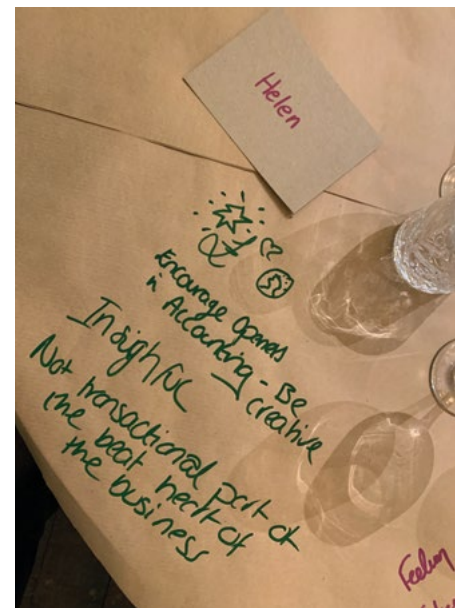 Helen
Encourage Openess
in Accounting - Be
creative
Insightful
Not transactional part of
the beat heart of
the business
Feeling